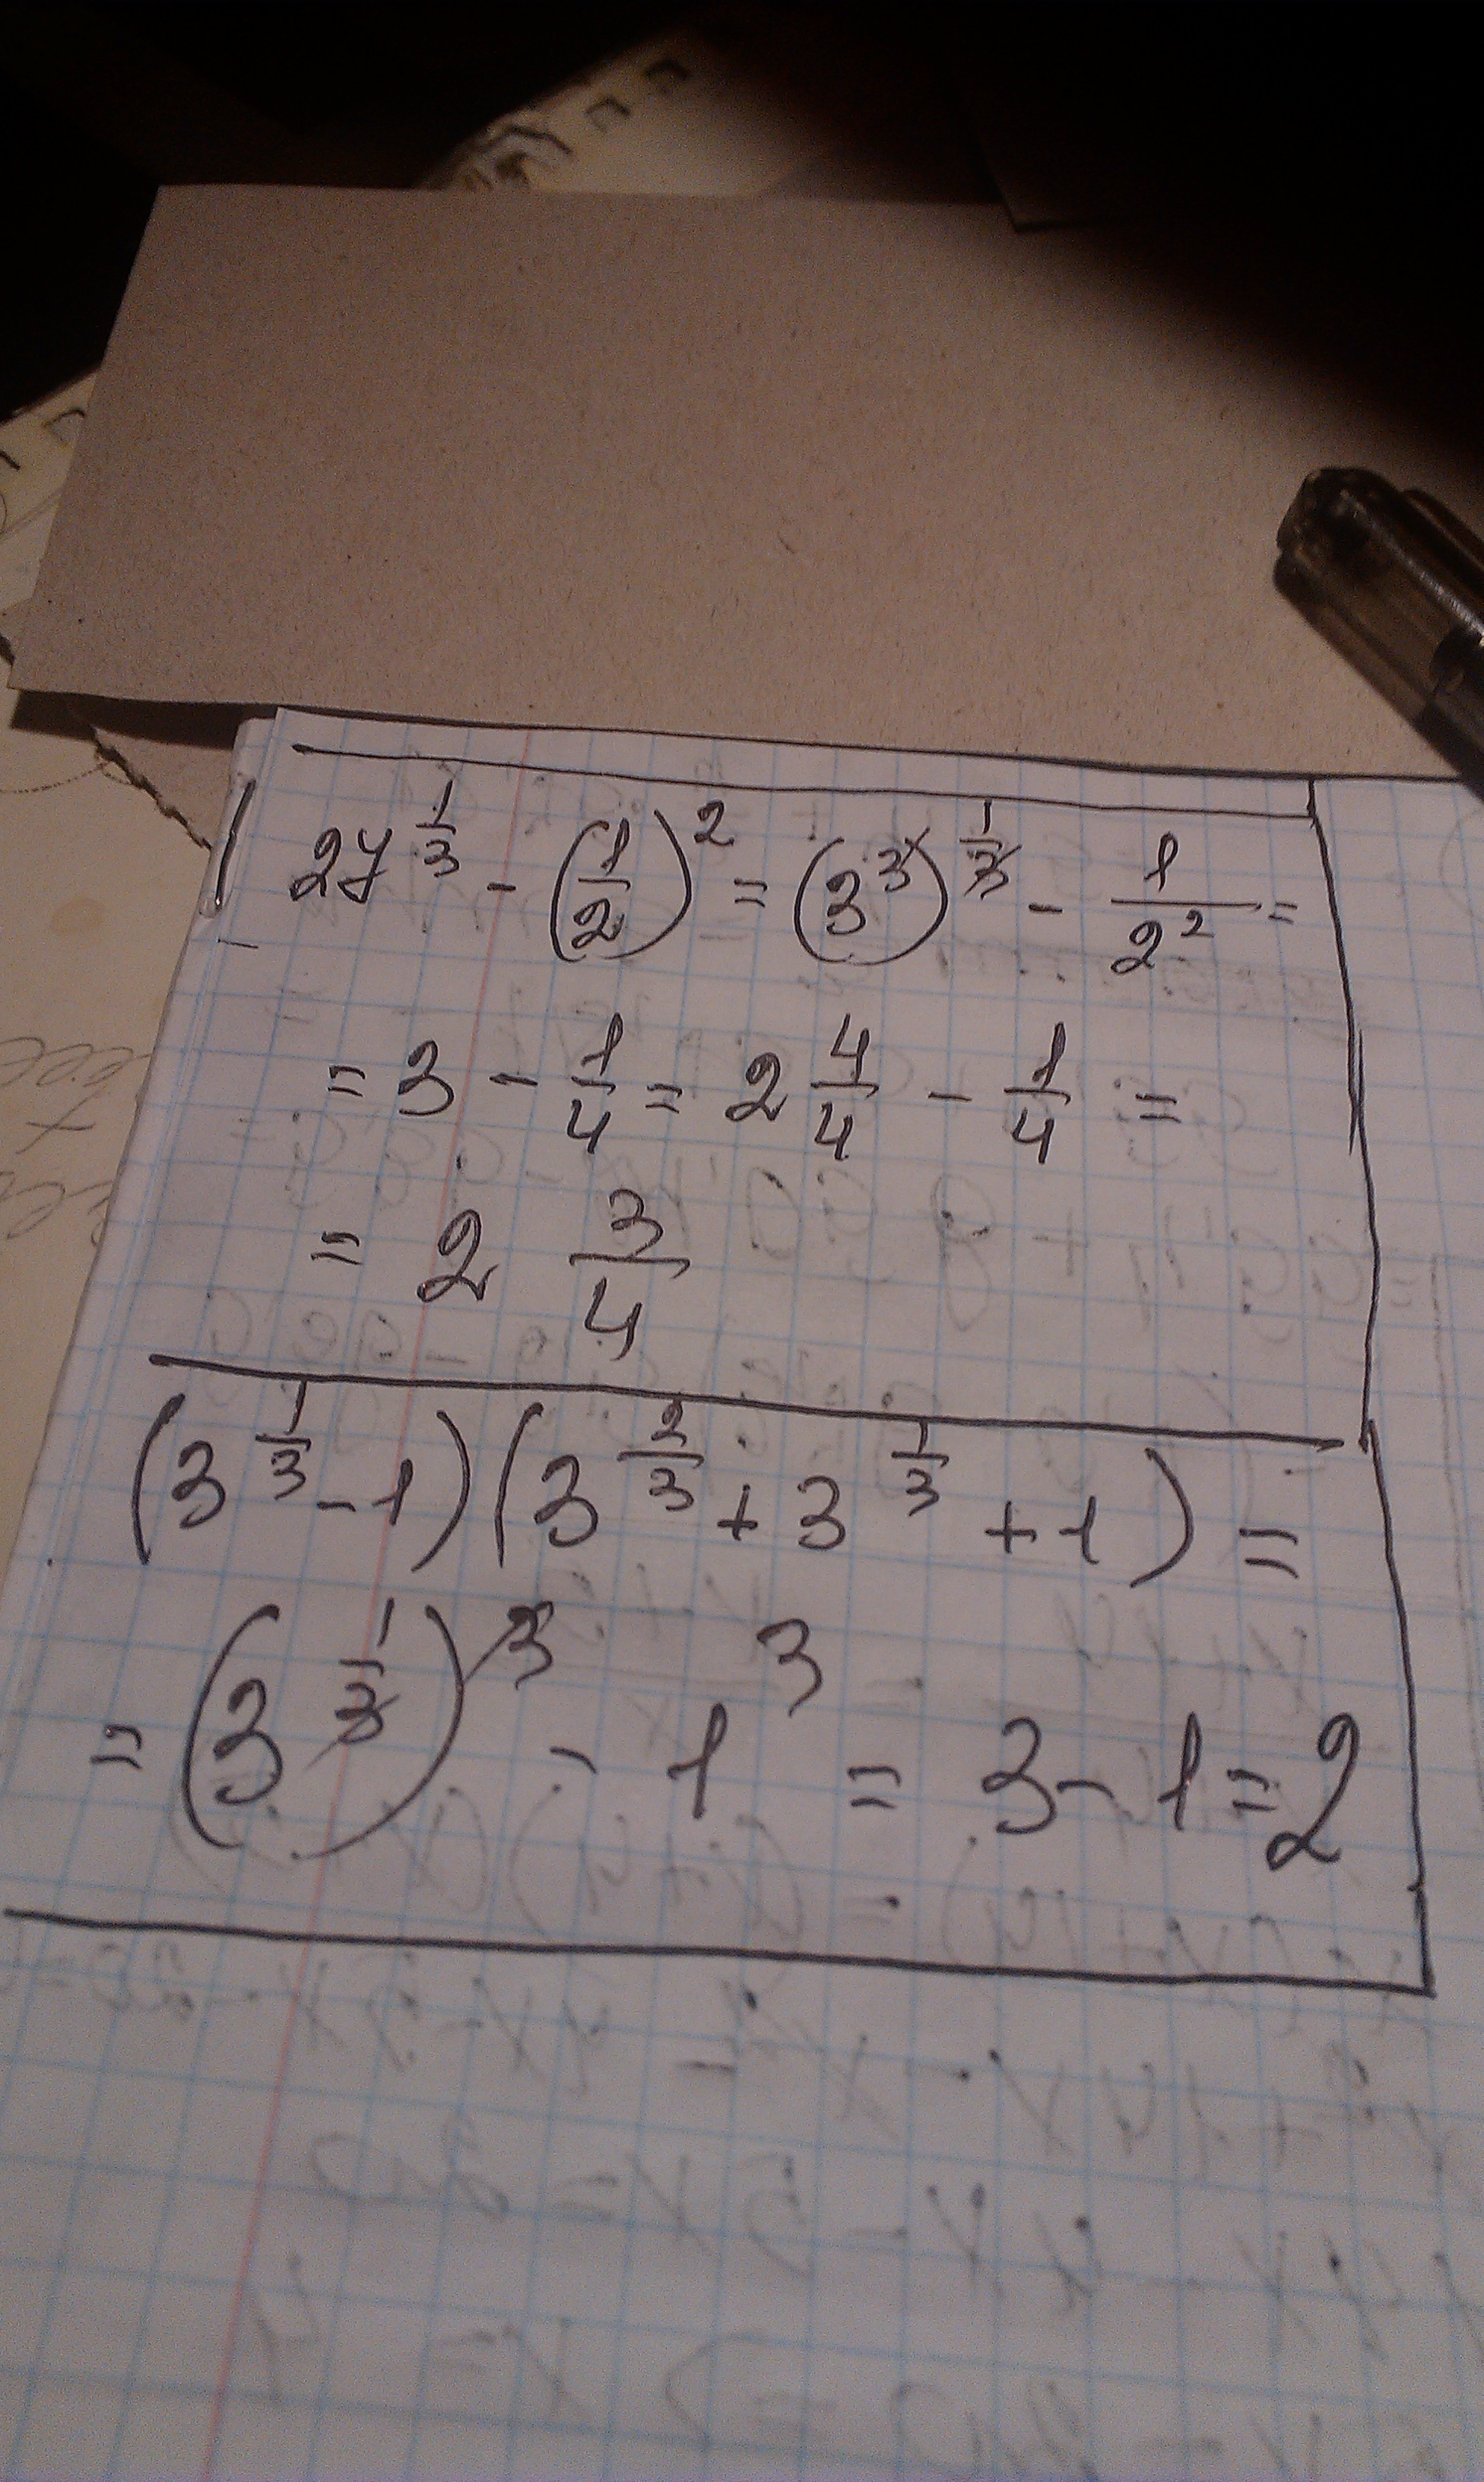 27^{\frac{1}{3}} - \left(\frac{1}{2}\right)^2 = \left(3^3\right)^{\frac{1}{3}} - \frac{1}{2^2} =
= 3 - \frac{1}{4} = 2\frac{4}{4} - \frac{1}{4} =
= 2\frac{3}{4}
\left(3^{\frac{1}{3}} - 1\right)\left(3^{\frac{2}{3}} + 3^{\frac{1}{3}} + 1\right) =
= \left(3^{\frac{1}{3}}\right)^3 - 1^3 = 3 - 1 = 2